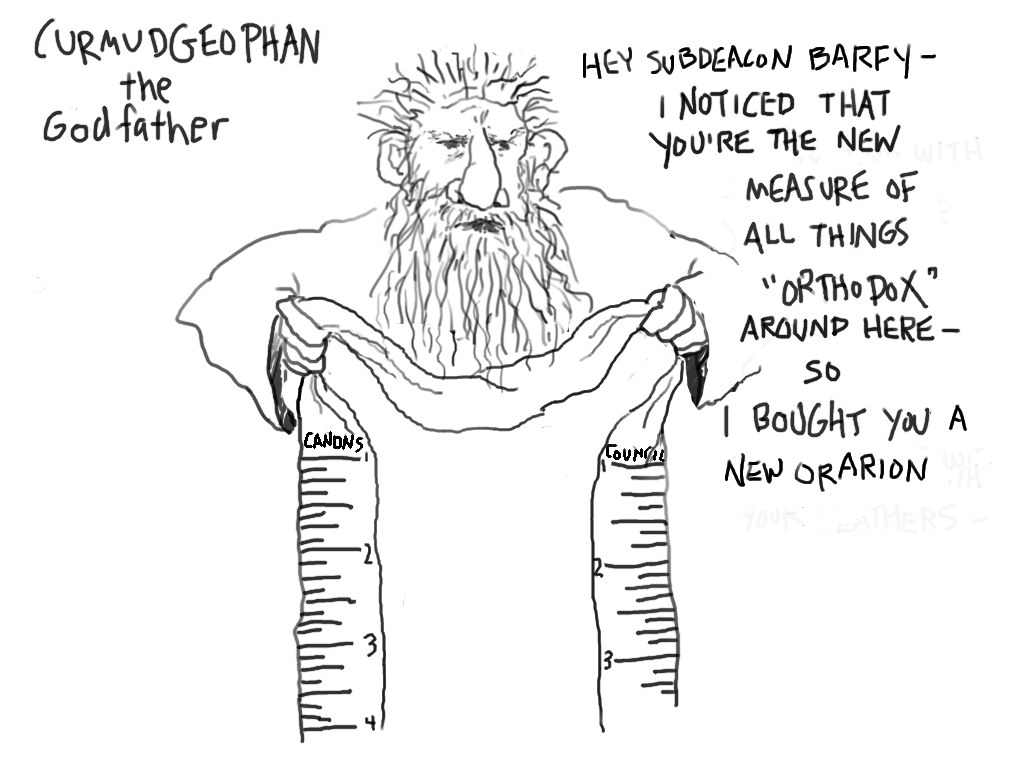 CURMUDGEOPHAN
the
Godfather
HEY SUBDEACON BARFY –
I NOTICED THAT
YOU'RE THE NEW
MEASURE OF
ALL THINGS
"ORTHODOX"
AROUND HERE –
SO
I BOUGHT YOU A
NEW ORARION
CANONS
1
2
3
4
COUNCIL
2
3
WITH
YOUR